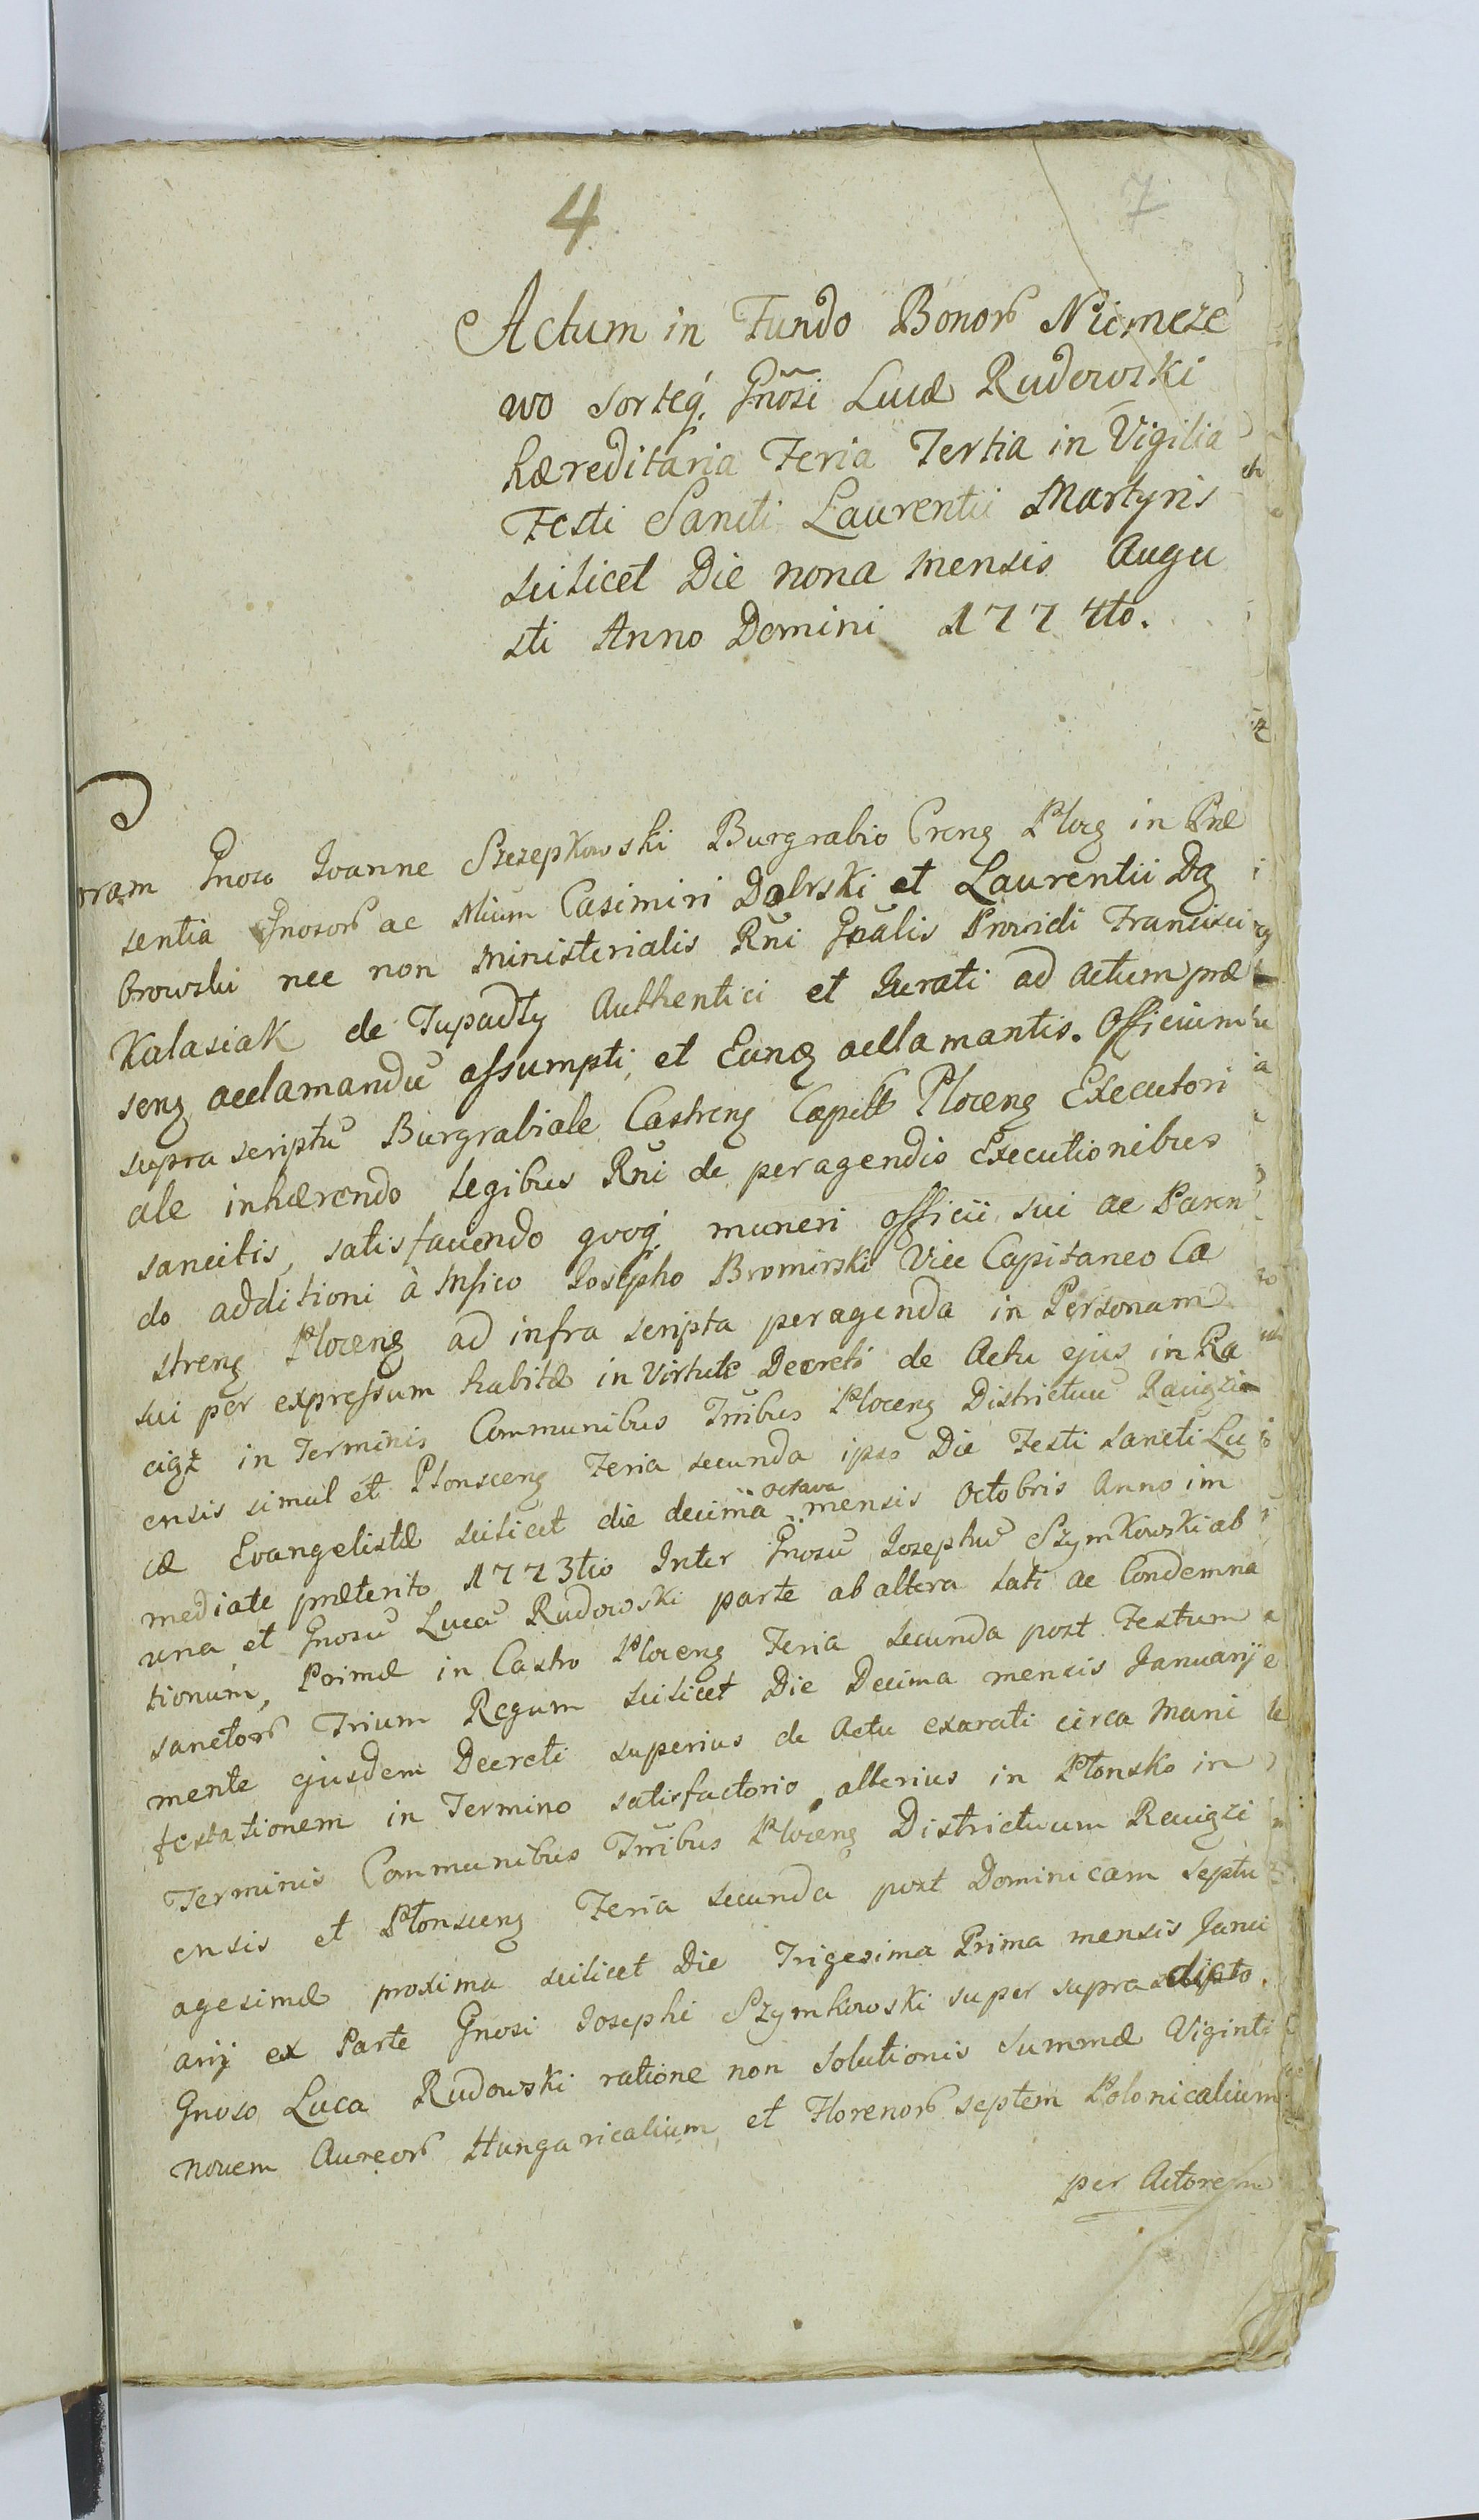 4
7
Actum in Fundo Bonorꝭ Niemcze
wo sorteq́. Gnõsi Lucæ Rudowski
hæreditaria Feria Tertia in Vigilia
Festi Sancti Laurentii Martyris
scilicet Die nona mensis Augu
sti Anno Domini 1774to.
Coram Gnoso Joanne Szczepkowski Burgrabio Crenʒ Plocʒ in Præ
sentia Gnosorꝭ ac Nlium Casimiri Dąbrski et Laurentii Dą
browski nec non Ministerialis Rñi Gñalis Providi Francisci
Kalasiak de Tupadły Authentici et Jurati ad Actum præ
senʒ acclamandũ assumpti, et Eunʒ acclamantis. Officium
supra scriptũ Burgrabiale Castrenʒ Capitt Plocenʒ Executori
ale inhærendo Legibus Rñi de peragendis Executionibus
sancitis, satisfaciendo quoq́. muneri officii sui ac Paren
do additioni à Mfico Josepho Bromirski Vice Capitaneo Ca
strenʒ Plocenʒ ad infra scripta peragenda in Personam
sui per expressum habitæ in Virtute Decreti de Actu ejus in Ra
ciąż in Terminis Communibus Trribus Plocenʒ Districtuũ Raciązi
ensis simul et Płonscenʒ Feria secunda ipso Die Festi Sancti Lu
cæ Evangelistæ scilicet die decima octava mensis Octobris Anno im
mediate præterito 1773tio Inter Gnosũ Josephũ Szymkowski ab
una et Gnosũ Lucã Rudowski parte ab altera Lati ac Condemna
tionum, Primæ in Castro Plocenʒ Feria secunda post Festum
sanctorꝭ Trium Regum scilicet Die Decima mensis Januarij
mente ejusdem Decreti superius de Actu exarati circa Mani
festationem in Termino satisfactorio, alterius in Płonsko in
Terminis Communibus Trribus Plocenʒ Districtuum Raciązi
ensis et Płonscenʒ Feria secunda post Dominicam Septu
agesimæ proxima scilicet Die Trigesima Prima mensis Janu
arij ex Parte Gnosi Josephi Szymkowski super supra dicto
Gnoso Luca Rudowski ratione non Solutionis Summæ Viginti
Novem Aureorꝭ Hungaricalium et Florenorꝭ septem Polonicalium
per Actorem